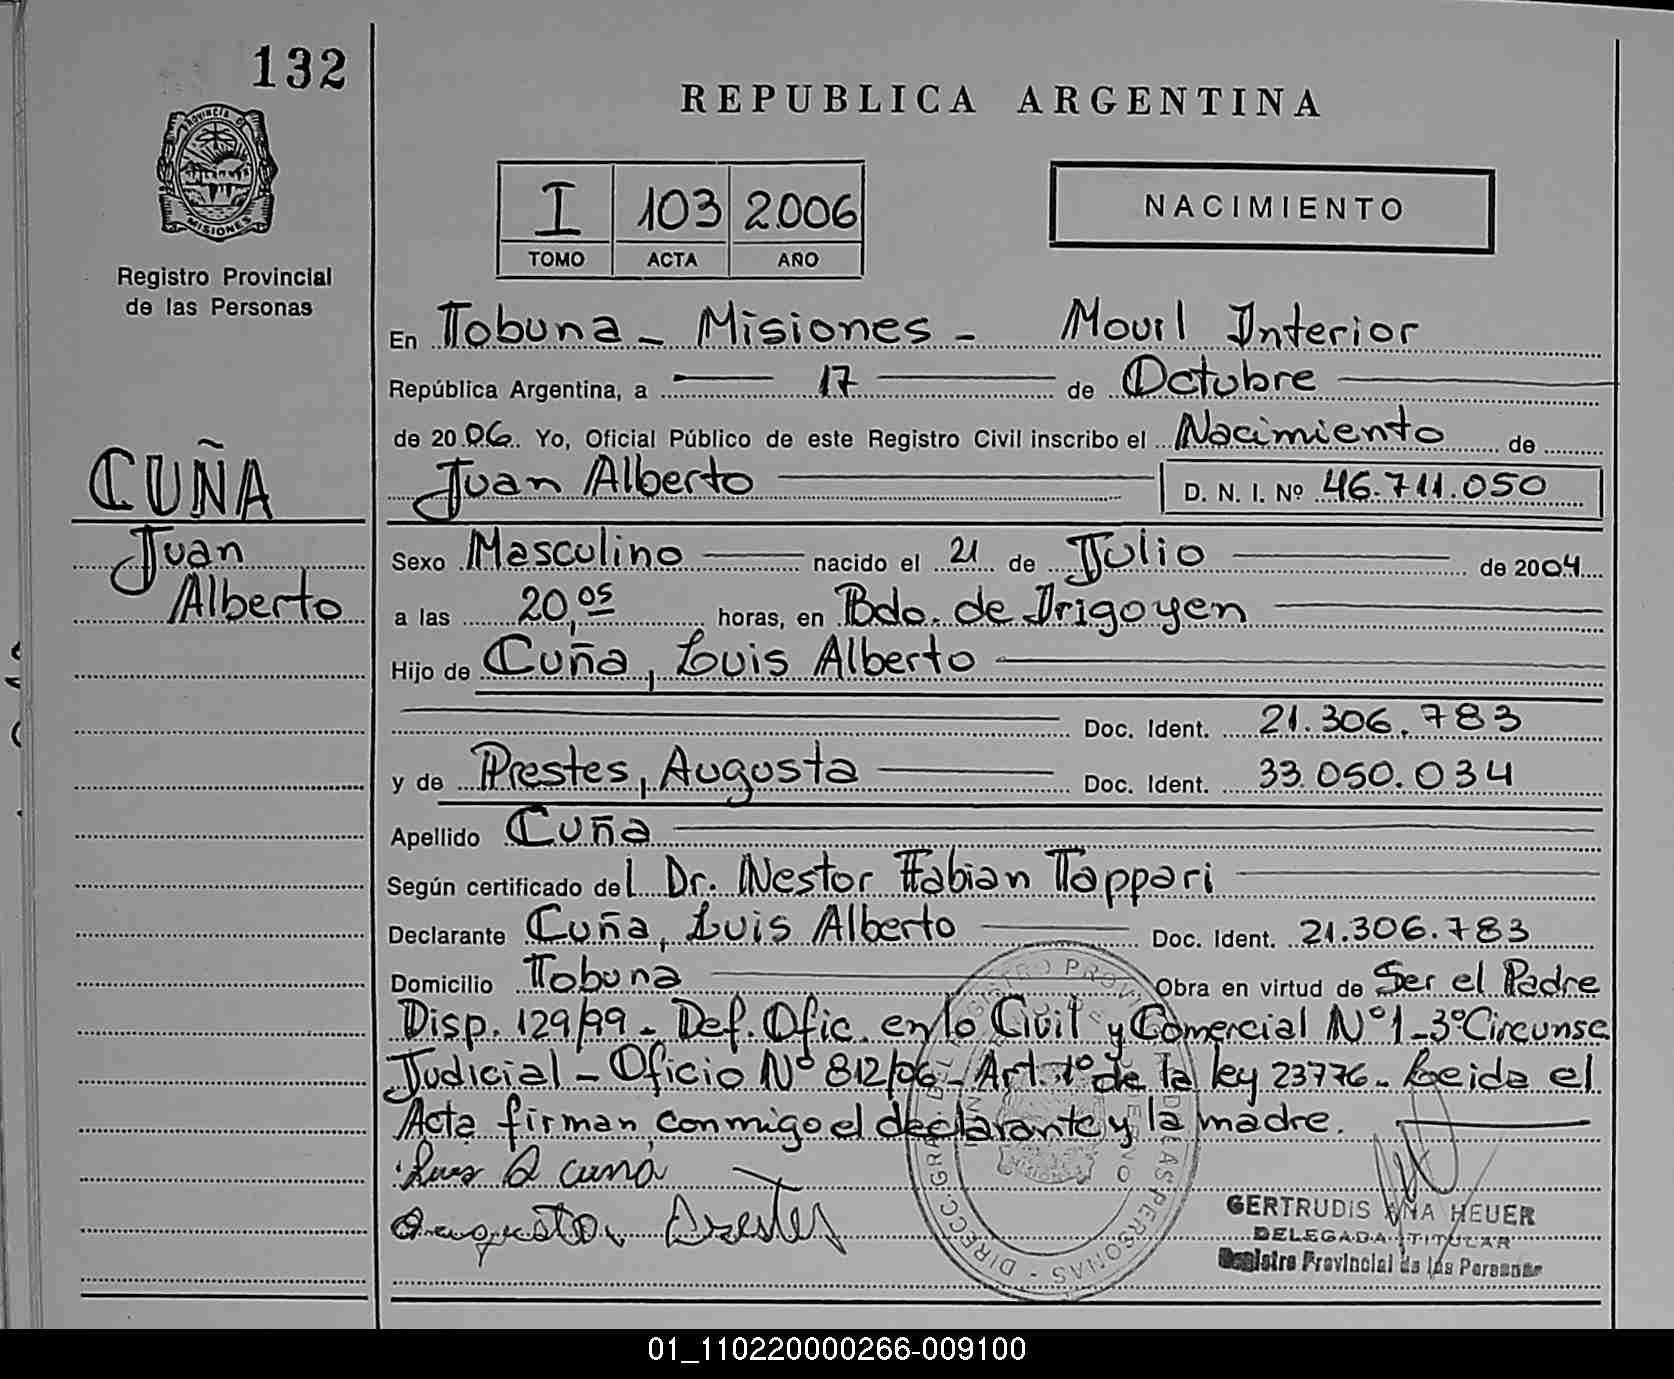 132
REPUBLICA ARGENTINA
PROVINCIA DE
MISIONES
Registro Provincial
de las Personas
I 103 2006
TOMO ACTA AÑO
NACIMIENTO
En Tobuna - Misiones - Movil Interior
República Argentina, a 17 de Octubre
de 2006. Yo, Oficial Público de este Registro Civil inscribo el Nacimiento de
Juan Alberto D. N. I. Nº 46.711.050
CUÑA
Juan
Alberto
Sexo Masculino nacido el 21 de Julio de 2004
a las 20,05 horas, en Bdo. de Irigoyen
Hijo de Cuña, Luis Alberto
Doc. Ident. 21.306.783
y de Prestes, Augusta Doc. Ident. 33.050.034
Apellido Cuña
Según certificado del Dr. Nestor Fabian Tappari
Declarante Cuña, Luis Alberto Doc. Ident. 21.306.783
Domicilio Tobuna Obra en virtud de Ser el Padre
Disp. 129/99 - Def. Ofic. en lo Civil y Comercial Nº 1 - 3º Circunsc
Judicial - Oficio Nº 812/06 - Art. 1º de la ley 23776 - Leida el
Acta firman conmigo el declarante y la madre.
Luis A cuña
Augusta Prestes
DIRECC. GRAL. DEL REGISTRO PROVINCIAL DE LAS PERSONAS
GERTRUDIS ANA HEUER
DELEGADA TITULAR
Registro Provincial de las Personas
01_110220000266-009100